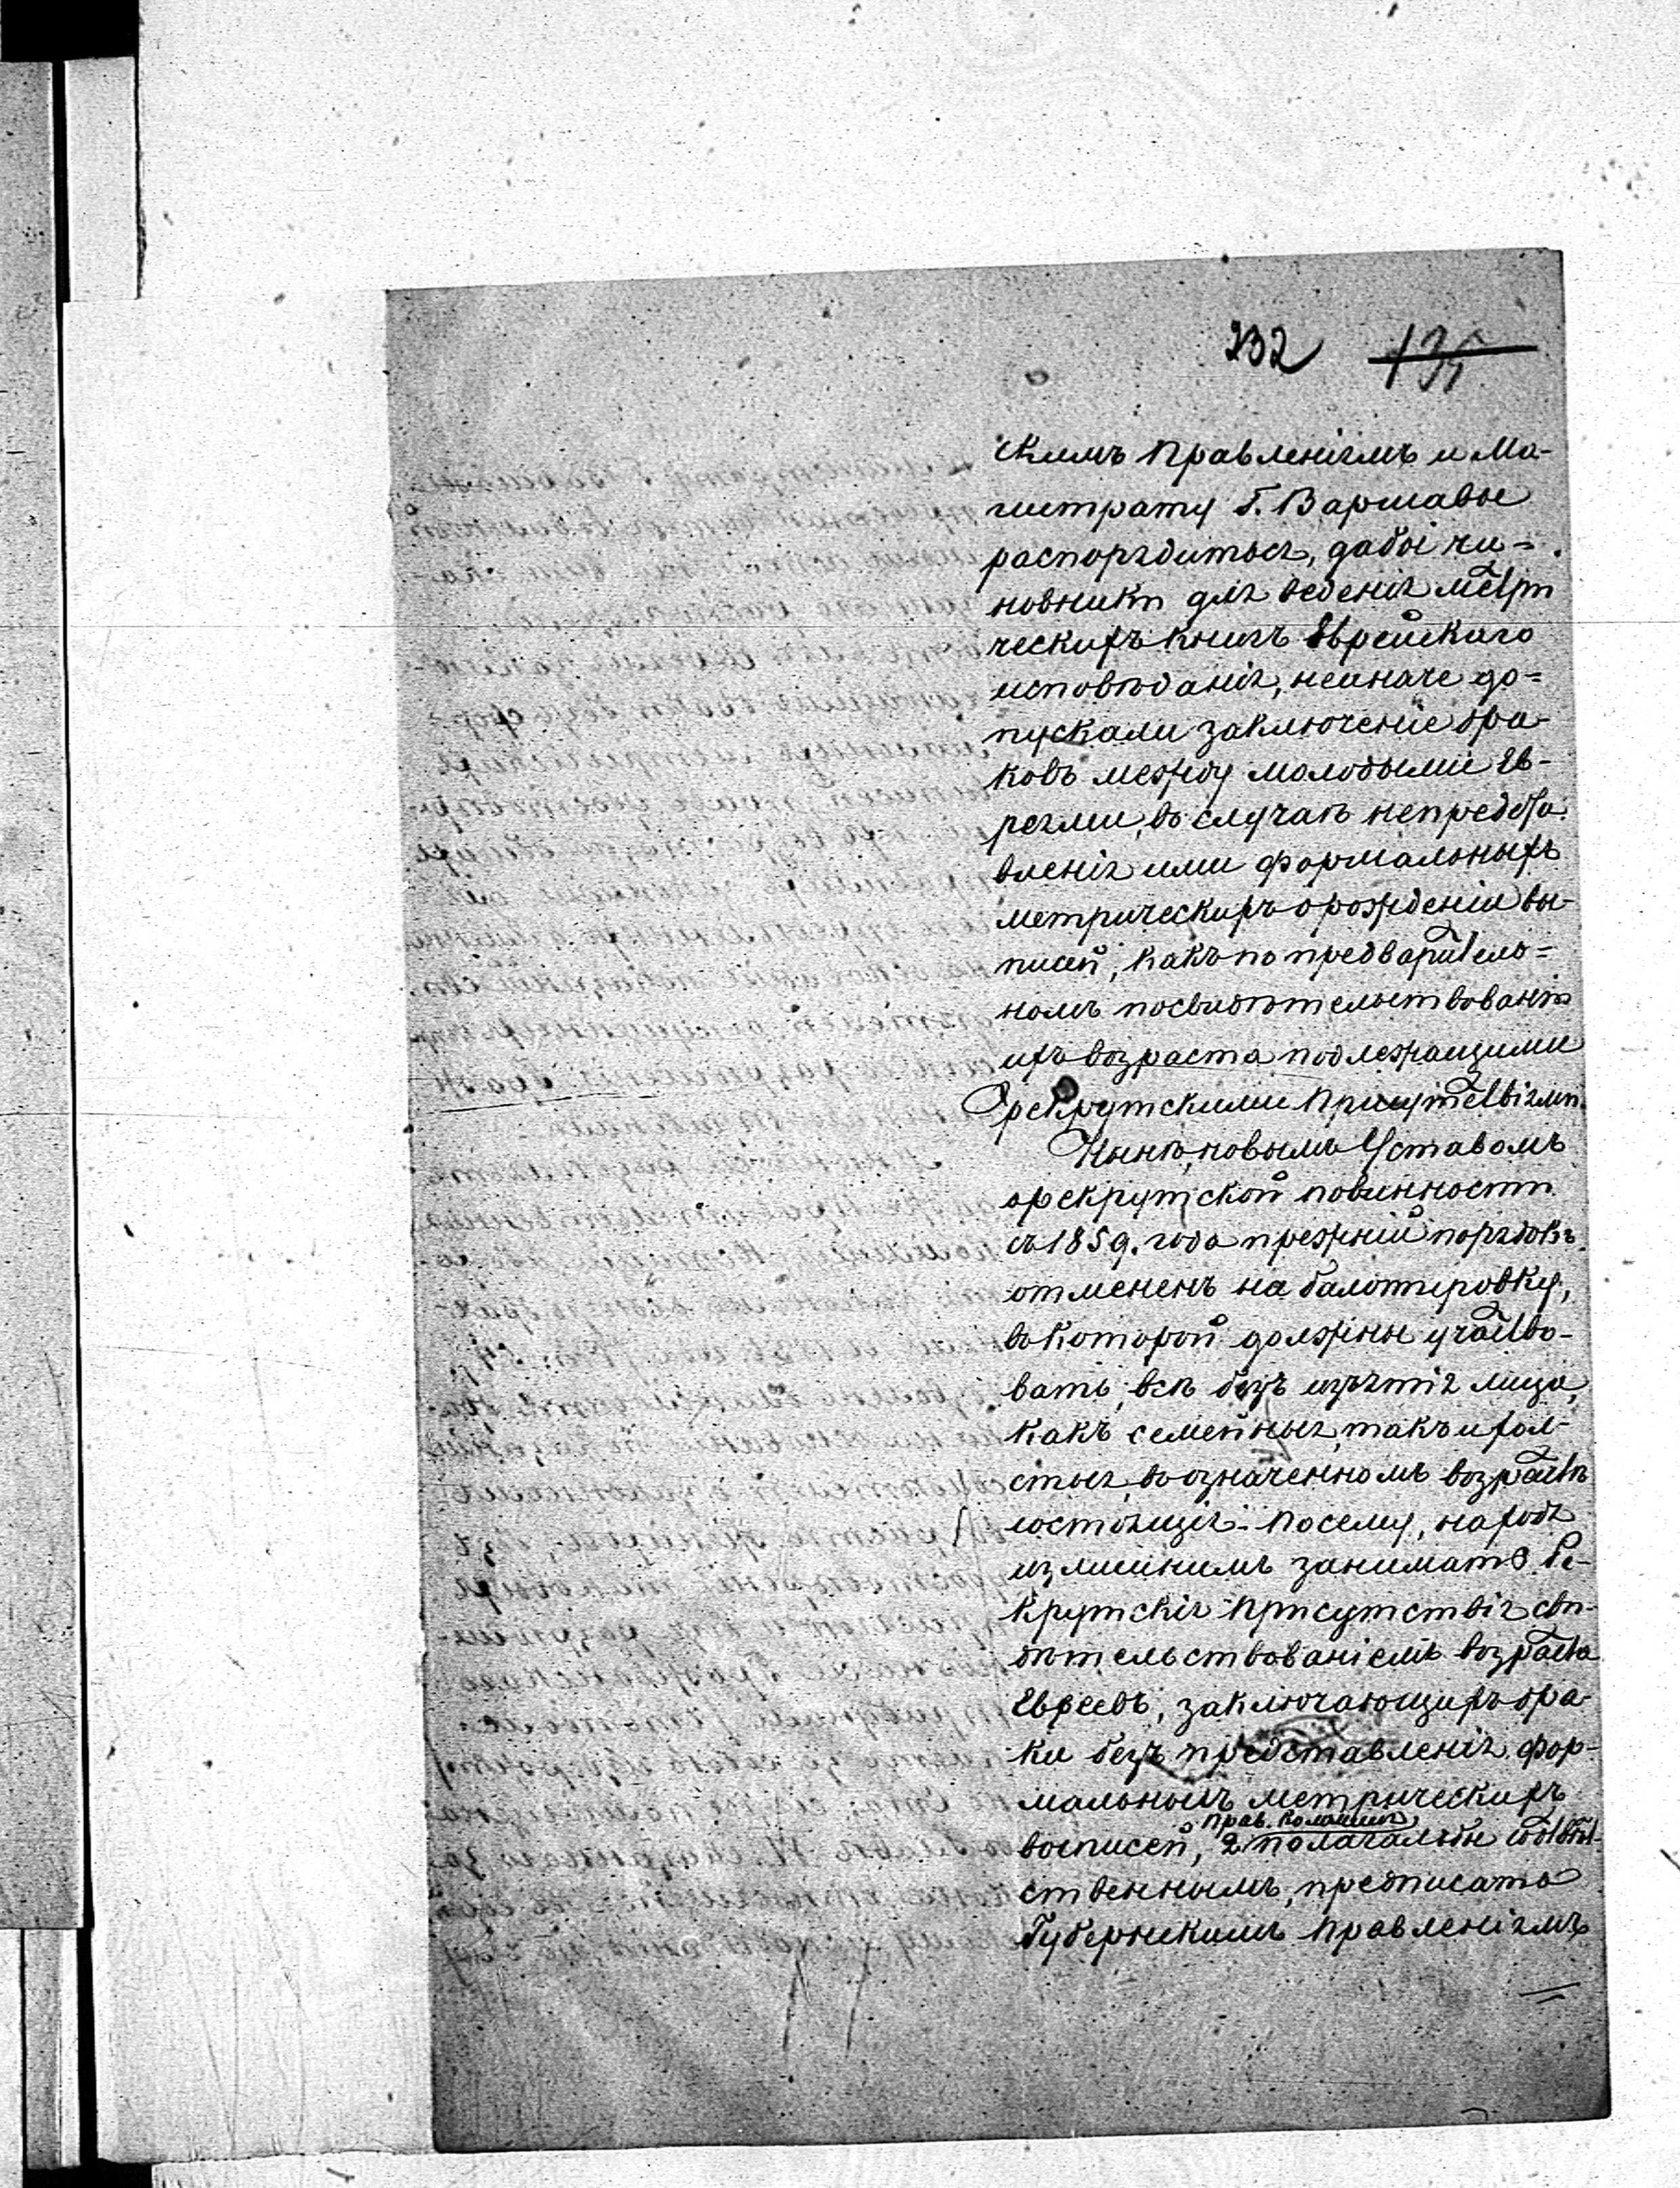 232 135
скимъ Правленіямъ и Ма-
гистрату Г. Варшавы
распорядиться, дабы чи=
новники для веденія метри
ческихъ книгъ Еврейскаго
исповѣданія, неиначе до=
пускали заключеніе бра-
ковъ между молодыми Ев-
реями, въ случаѣ непредста
вленія ими формальныхъ
метрическихъ о рожденіи вы-
писей, какъ по предваритель=
номъ посвидѣтельствованіи
ихъ возраста подлежащими
рекрутскими Присутствіями.
Нынѣ, новымъ Уставомъ
о рекрутской повинности
съ 1859. года прежній порядокъ
отмененъ на балотировку,
въ которой должны участво-
вать, всѣ безъ изъятія лица,
какъ семейныя, такъ и хол-
стыя, въ означенномъ возрастѣ
состоящія. Посему, находя
излишнимъ занимать Ре-
крутскія Присутствія сви-
дѣтельствованіемъ возраста
Евреевъ, заключающихъ бра-
ки безъ представленія фор-
мальныхъ метрическихъ
Прав. Коммисія
выписей, я полагалъбы соотвѣт-
ственнымъ, предписать
Губернскимъ Правленіямъ